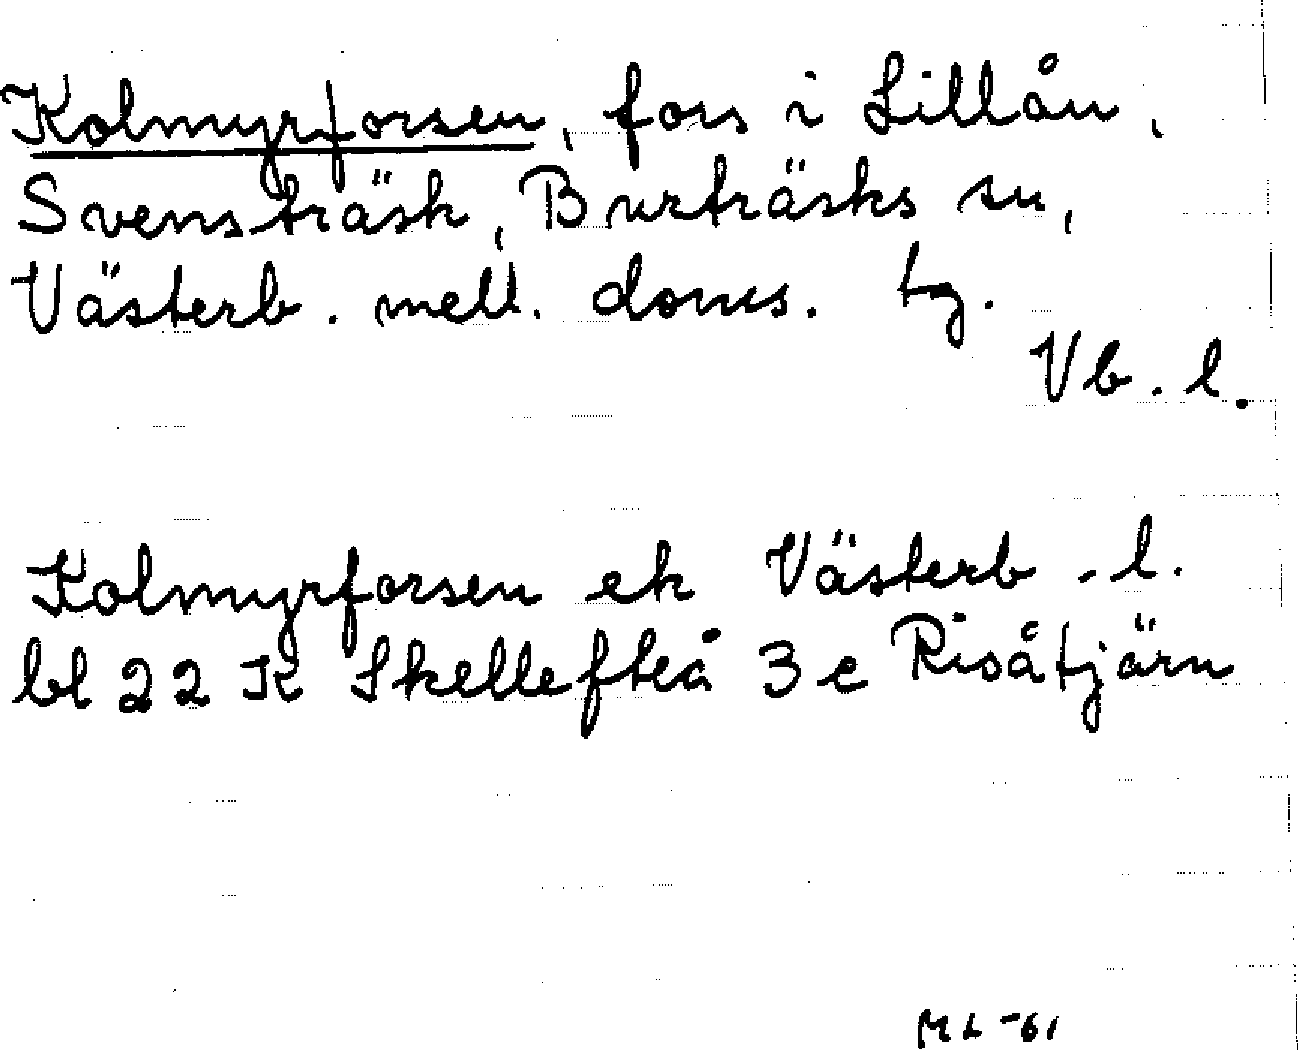 Kolmyrforsen, fors i Lillån,
Svensträsk, Burträsks sn,
Västerb. mell. doms. tg.
Vb. l.
Kolmyrforsen ek Västerb. l.
bl 22 K Skellefteå 3 e Risåtjärn
ML -61